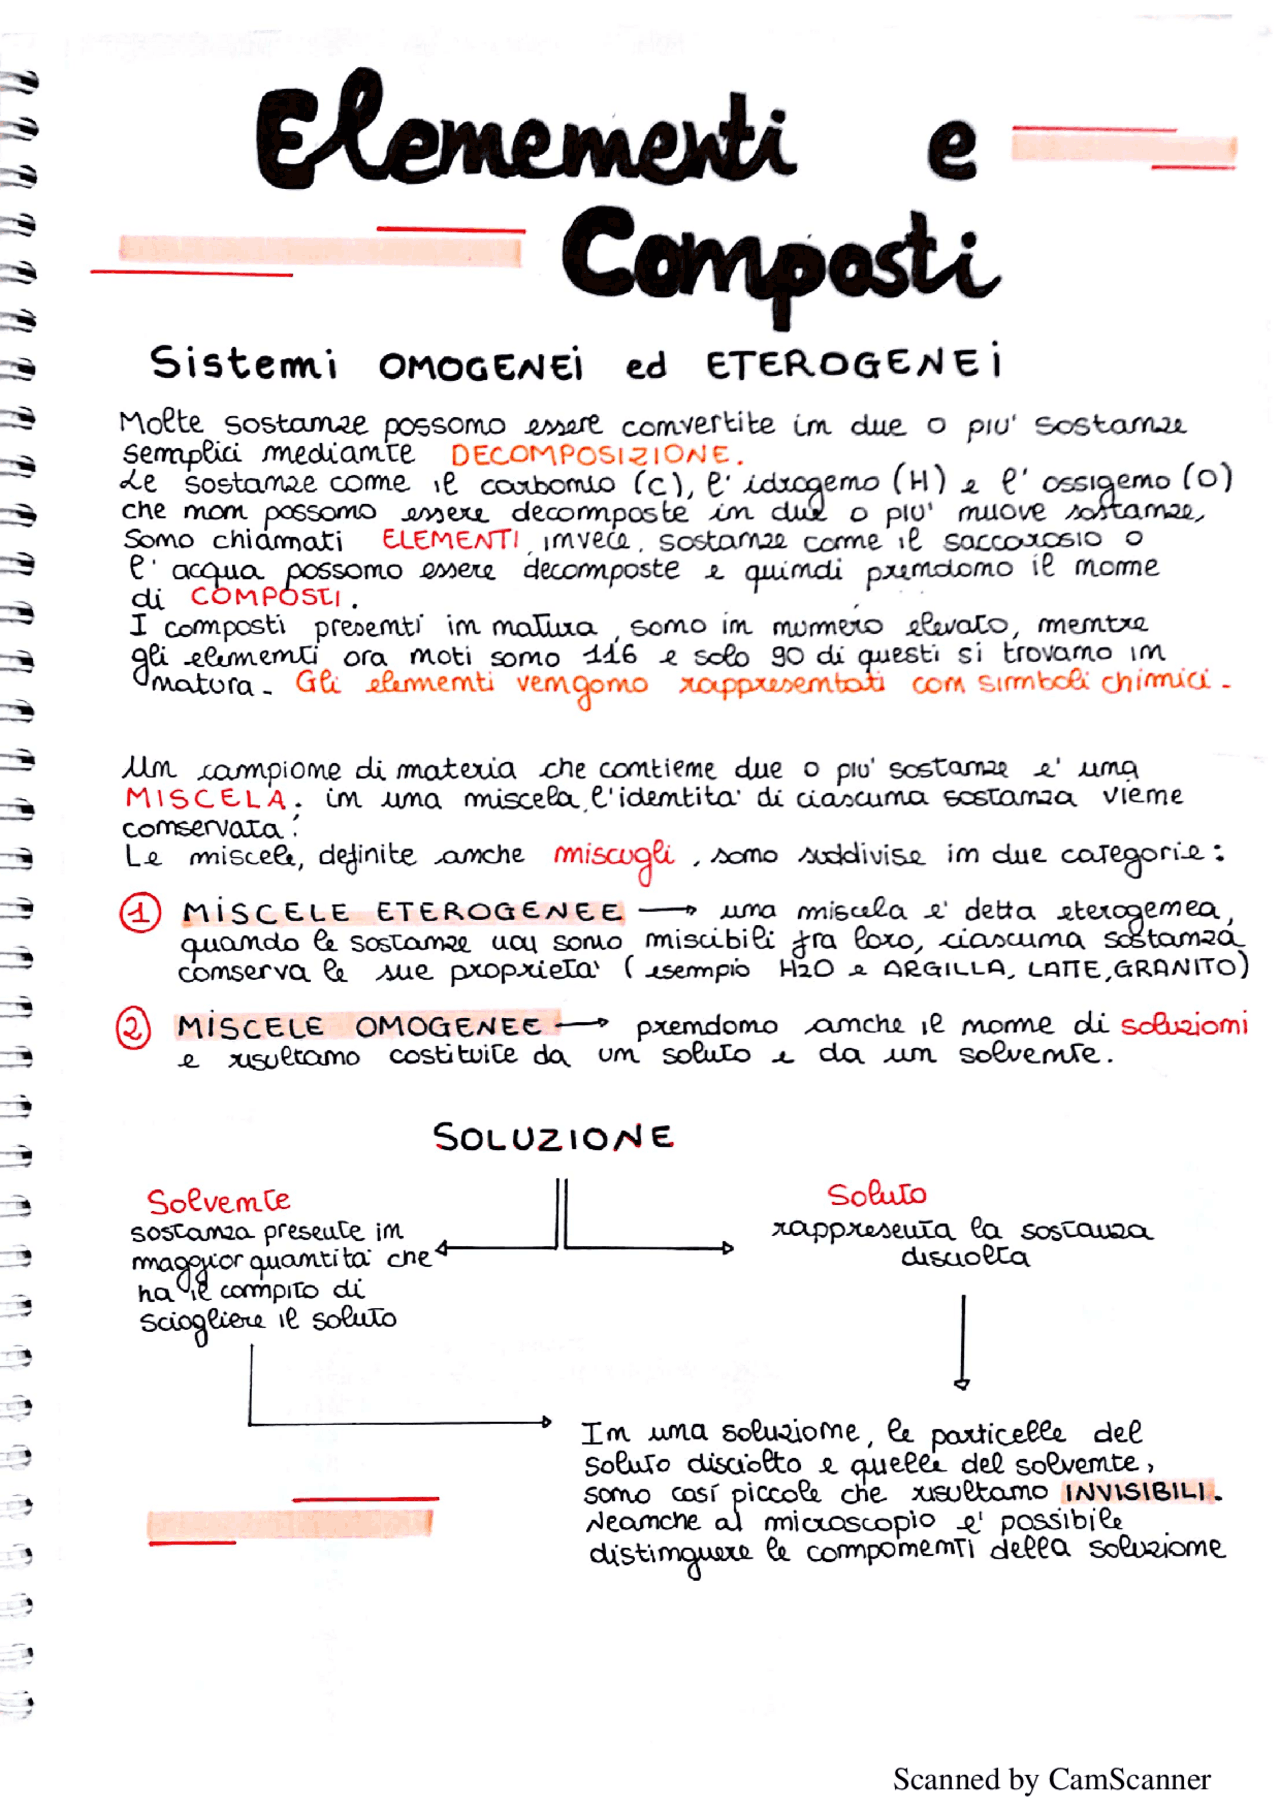 Elemementi e
Composti
Sistemi OMOGENEI ed ETEROGENEI
Molte sostanze possono essere convertite in due o piu' sostanze
semplici mediante DECOMPOSIZIONE.
Le sostanze come il carbonio (C), l'idrogeno (H) e l'ossigeno (O)
che non possono essere decomposte in due o piu' nuove sostanze,
sono chiamati ELEMENTI, invece, sostanze come il saccarosio o
l'acqua possono essere decomposte e quindi prendono il nome
di COMPOSTI.
I composti presenti in natura, sono in numero elevato, mentre
gli elementi ora noti sono 116 e solo 90 di questi si trovano in
natura. Gli elementi vengono rappresentati con simboli chimici.
Un campione di materia che contiene due o piu' sostanze e' una
MISCELA. in una miscela, l'identita' di ciascuna sostanza viene
conservata.
Le miscele, definite anche miscugli, sono suddivise in due categorie:
1 MISCELE ETEROGENEE → una miscela e' detta eterogenea,
quando le sostanze non sono miscibili fra loro, ciascuna sostanza
conserva le sue proprieta' (esempio H2O e ARGILLA, LATTE, GRANITO)
2 MISCELE OMOGENEE → prendono anche il nome di soluzioni
e risultano costituite da un soluto e da un solvente.
SOLUZIONE
Solvente
sostanza presente in
maggior quantita' che
ha il compito di
sciogliere il soluto
Soluto
rappresenta la sostanza
disciolta
In una soluzione, le particelle del
soluto disciolto e quelle del solvente,
sono così piccole che risultano INVISIBILI.
Neanche al microscopio e' possibile
distinguere le componenti della soluzione
Scanned by CamScanner